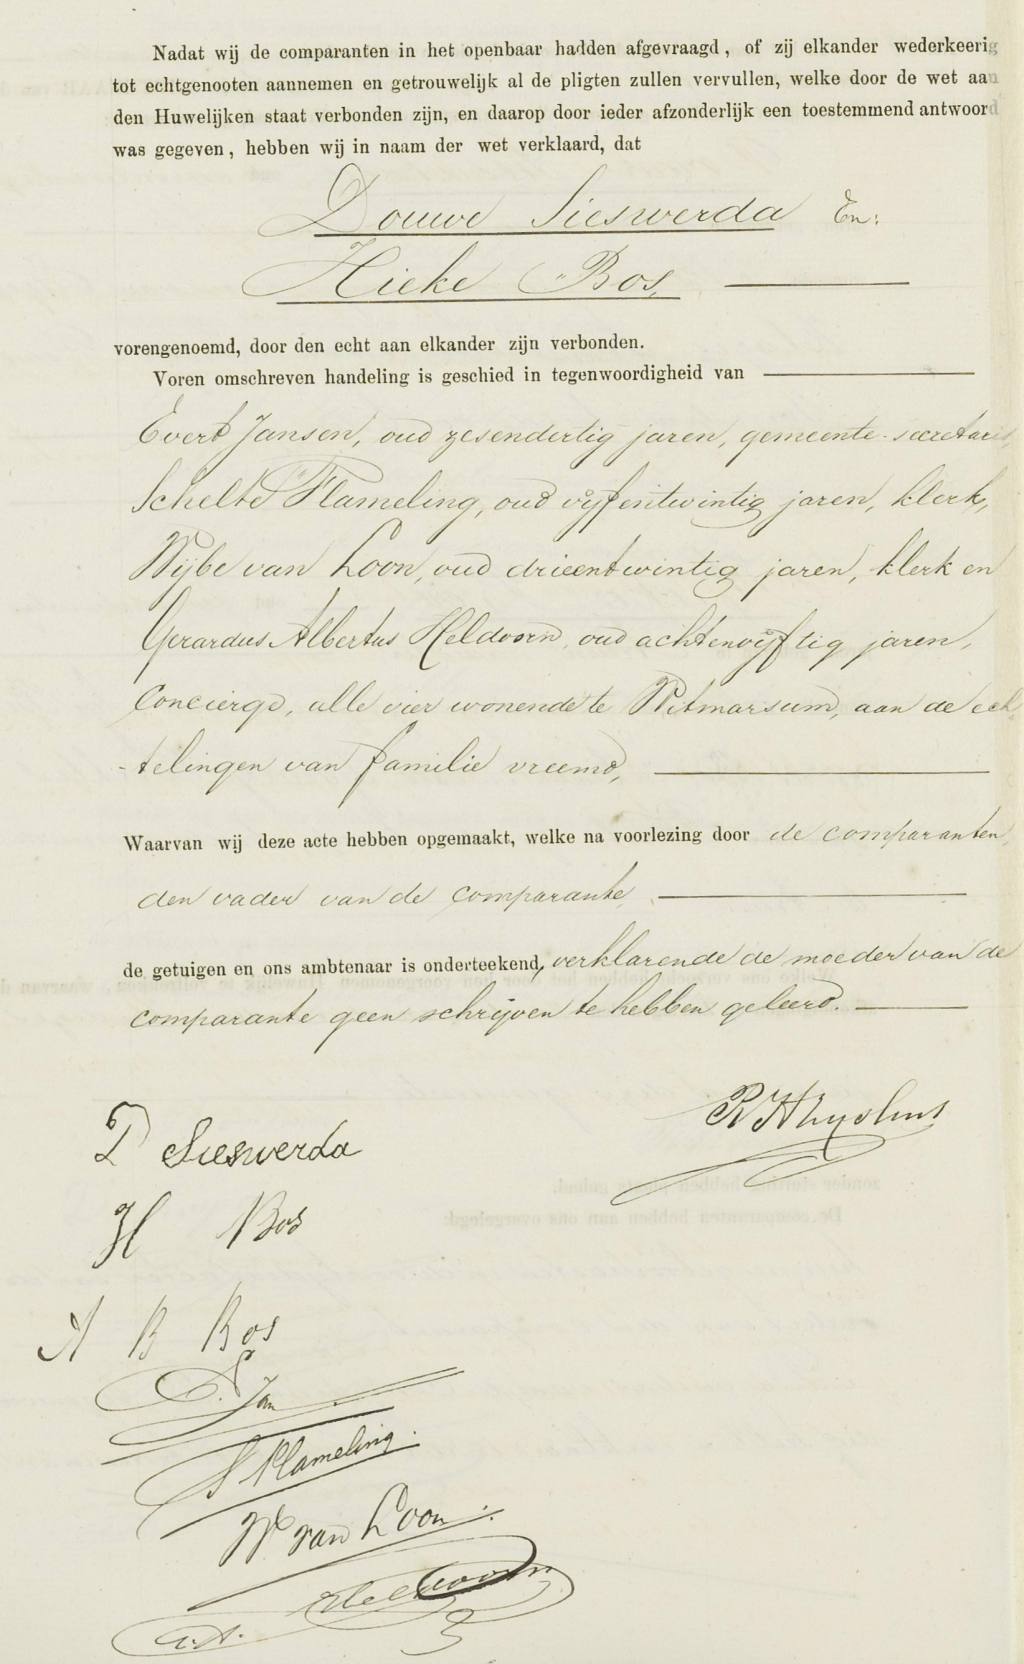 Nadat wij de comparanten in het openbaar hadden afgevraagd, of zij elkander wederkeerig
tot echtgenooten aannemen en getrouwelijk al de pligten zullen vervullen, welke door de wet aan
den Huwelijken staat verbonden zijn, en daarop door ieder afzonderlijk een toestemmend antwoord
was gegeven, hebben wij in naam der wet verklaard, dat
Douwe Sieswerda En:
Hieke Bos,
vorengenoemd, door den echt aan elkander zijn verbonden.
Voren omschreven handeling is geschied in tegenwoordigheid van
Evert Jansen, oud zesendertig jaren, gemeente-secretaris,
Schelte Flameling, oud vijfentwintig jaren, klerk,
Wijbe van Loon, oud drieentwintig jaren, klerk en
Gerardus Albertus Heldoorn, oud achtenvijftig jaren,
Concierge, alle vier wonende te Witmarsum, aan de ech
-telingen van familie vreemd,
Waarvan wij deze acte hebben opgemaakt, welke na voorlezing door de comparanten,
den vader van de comparante,
de getuigen en ons ambtenaar is onderteekend, verklarende de moeder van de
comparante geen schrijven te hebben geleerd.
D Sieswerda
H Bos
A B Bos
S Flameling.
W van Loon
G.A. Heldoorn